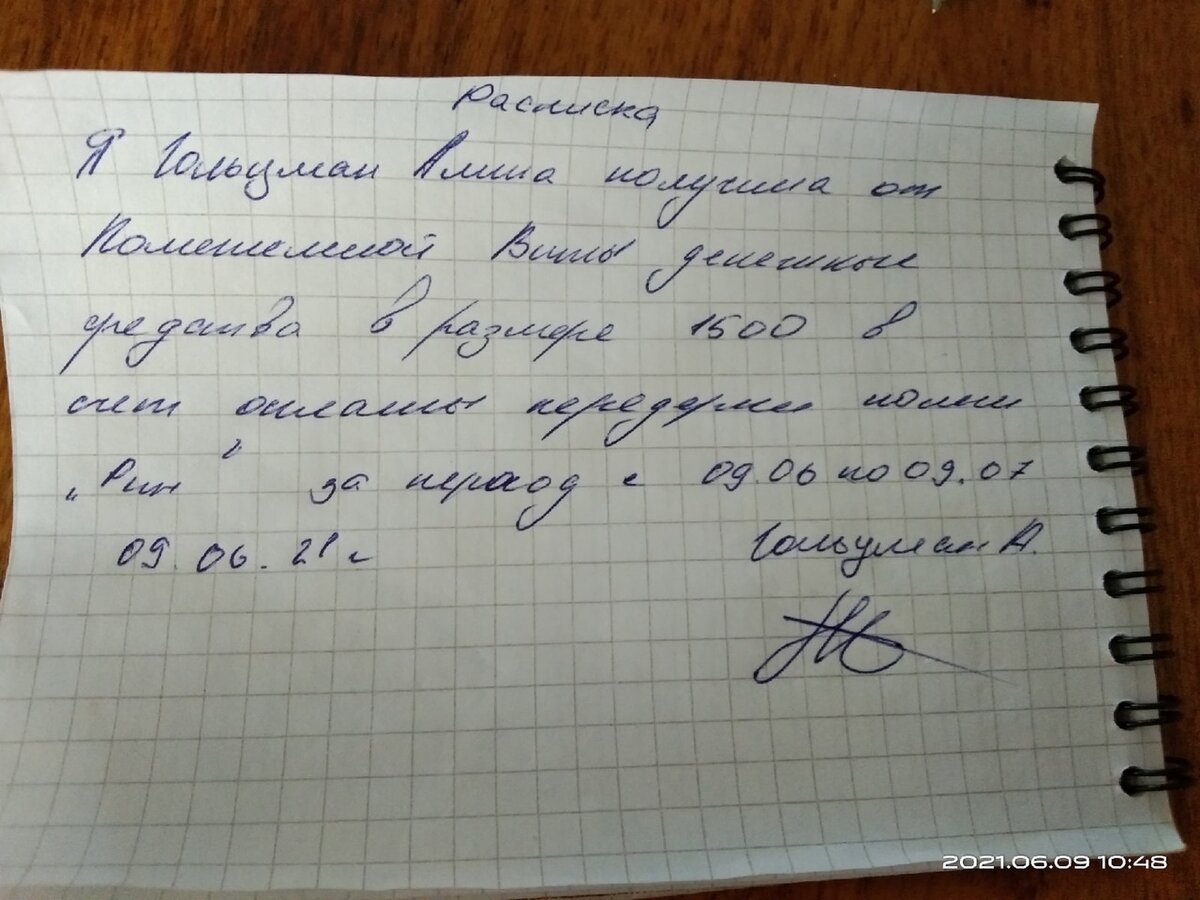 Расписка
Я Гольцман Алина получила от
Виты денежные
средства в размере 1500 в
счет оплаты передержки
„Рич" за период с 09.06 по 09.07
09.06.21 г
Гольцман А.
2021.06.09 10:48